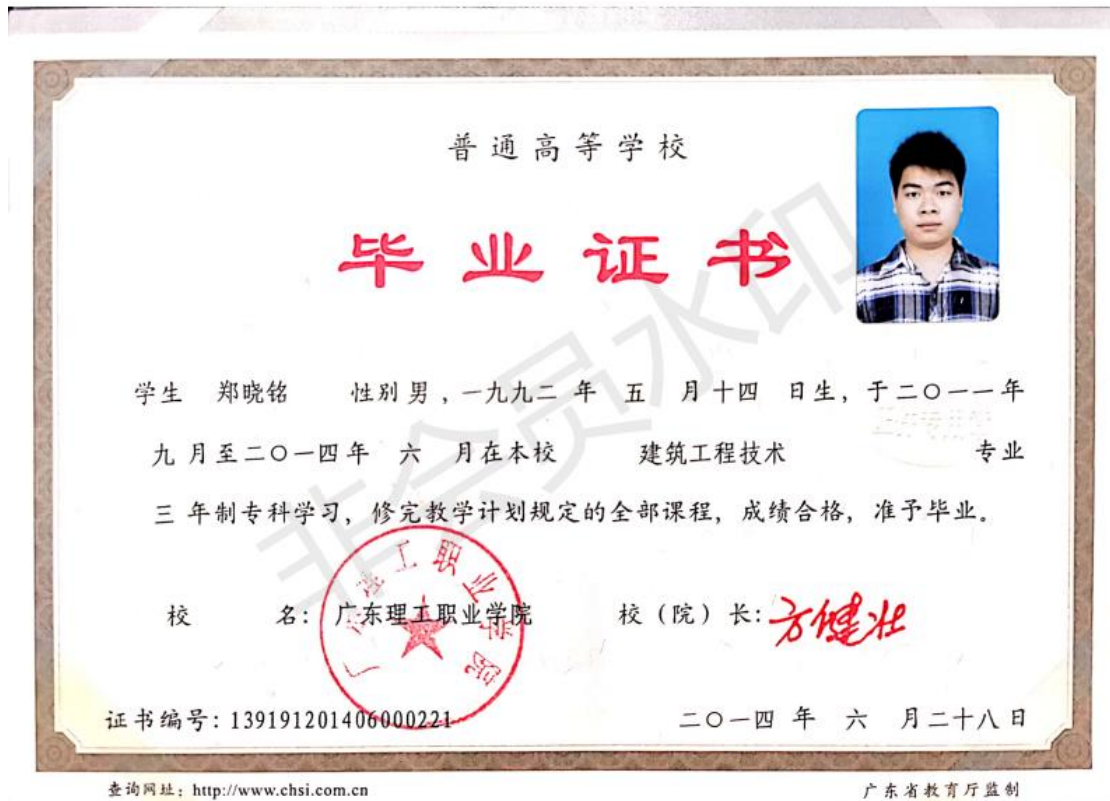 普通高等学校
毕业证书
学生 郑晓铭 性别 男 ，一九九二 年 五 月 十四 日生，于二〇一一年
九 月至二〇一四年 六 月在本校 建筑工程技术 专业
三 年制专科学习，修完教学计划规定的全部课程，成绩合格，准予毕业。
校 名：广东理工职业学院 校（院）长：方健壮
广东理工职业学院
证书编号：139191201406000221 二〇一四 年 六 月二十八日
查询网址：http://www.chsi.com.cn 广东省教育厅监制
非会员水印